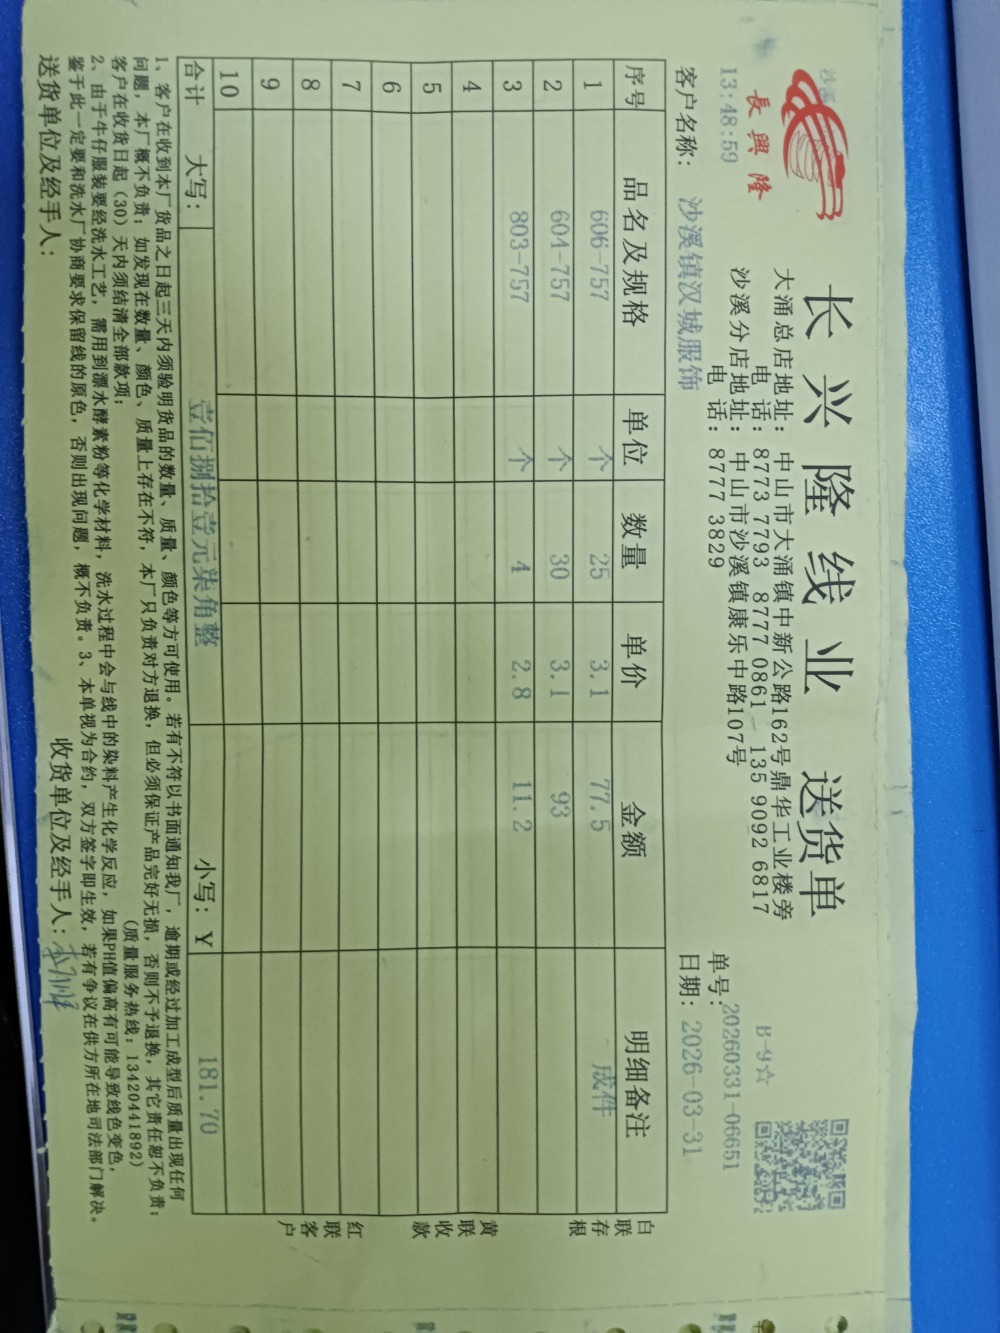 長興隆
长兴隆线业 送货单
大涌总店地址：中山市大涌镇中新公路162号鼎华工业楼旁
电 话：8773 7793 8777 0861 135 9092 6817
沙溪分店地址：中山市沙溪镇康乐中路107号
电 话：8777 3829
B-9☆
13:48:59
单号：20260331-06651
客户名称：沙溪镇汉城服饰
日期：2026-03-31
序号 品名及规格 单位 数量 单价 金额 明细备注
1 606-757 个 25 3.1 77.5 成件
2 604-757 个 30 3.1 93
3 803-757 个 4 2.8 11.2
4
5
6
7
8
9
10
合计 大写：壹佰捌拾壹元柒角整 小写：￥ 181.70
白联存根
黄联收款
红联客户
1、客户在收到本厂货品之日起三天内须验明货品的数量、质量、颜色等方可使用。若有不符以书面通知我厂，逾期或经过加工成型后质量出现任何
问题，本厂概不负责；如发现在数量、颜色、质量上存在不符，本厂只负责对方退换，但必须保证产品完好无损，否则不予退换，其它责任恕不负责；
客户在收货日起（30）天内须结清全部款项； （质量服务热线：13420441892）
2、由于牛仔服装要经洗水工艺，需用到漂水酵素粉等化学材料，洗水过程中会与线中的染料产生化学反应，如果PH值偏高有可能导致线色变色，
鉴于此一定要和洗水厂协商要求保留线的原色，否则出现问题，概不负责。3、本单视为合约，双方签字即生效，若有争议在供方所在地司法部门解决。
送货单位及经手人： 收货单位及经手人：